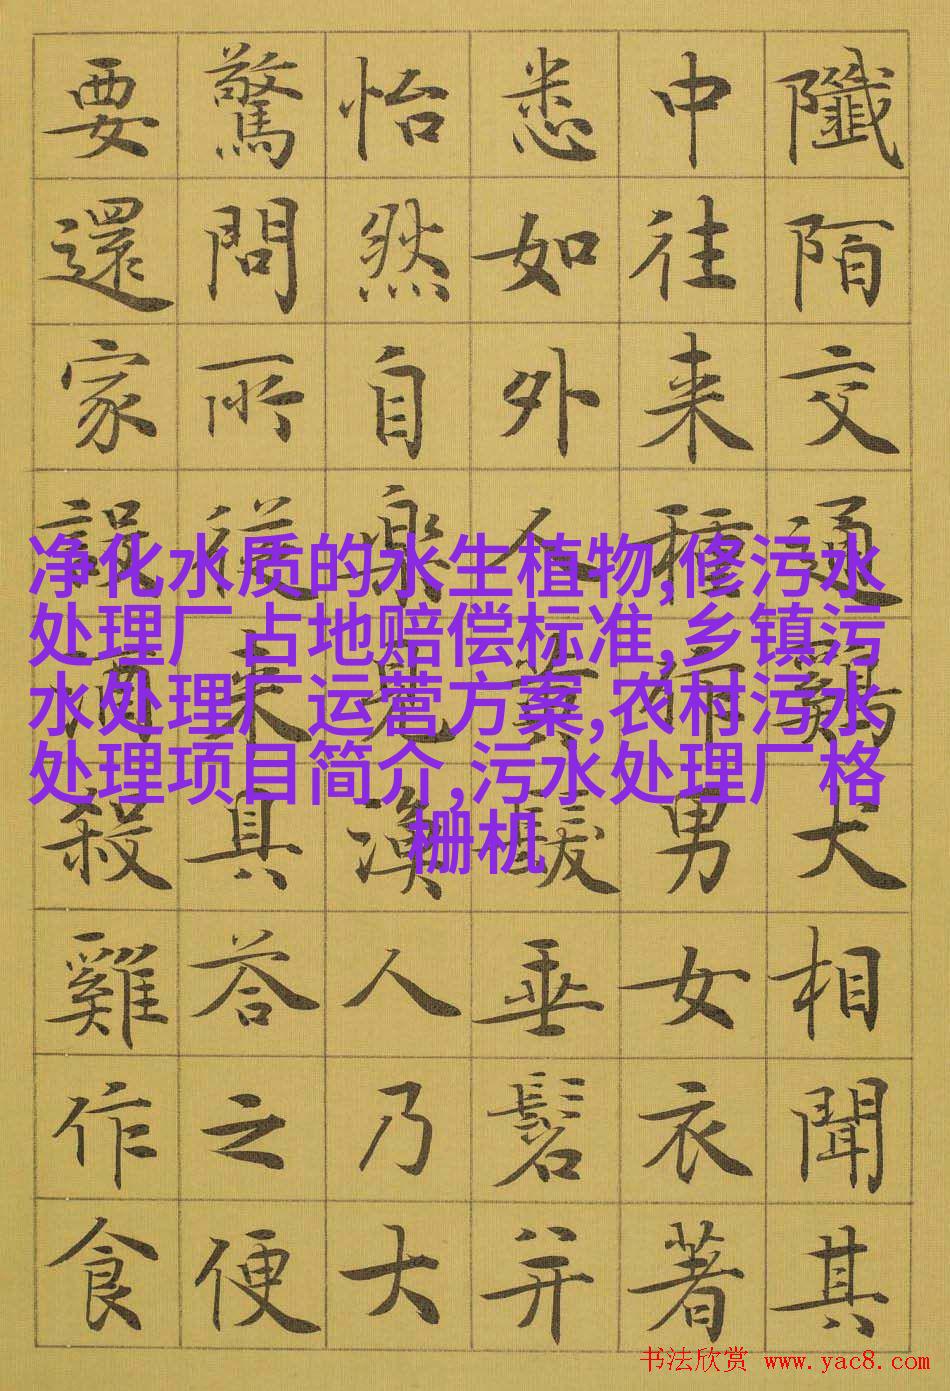 陌交通鷄犬相聞其
中往来種作男女衣著
悉如外人黄髮垂髫并
怡然自樂見漁人乃大
驚問所從来具答之便
要還家設酒殺雞作食
净化水质的水生植物,修污水
处理厂占地赔偿标准,乡镇污
水处理厂运营方案,农村污水
处理项目简介,污水处理厂格
栅机
书法欣赏 www.yac8.com